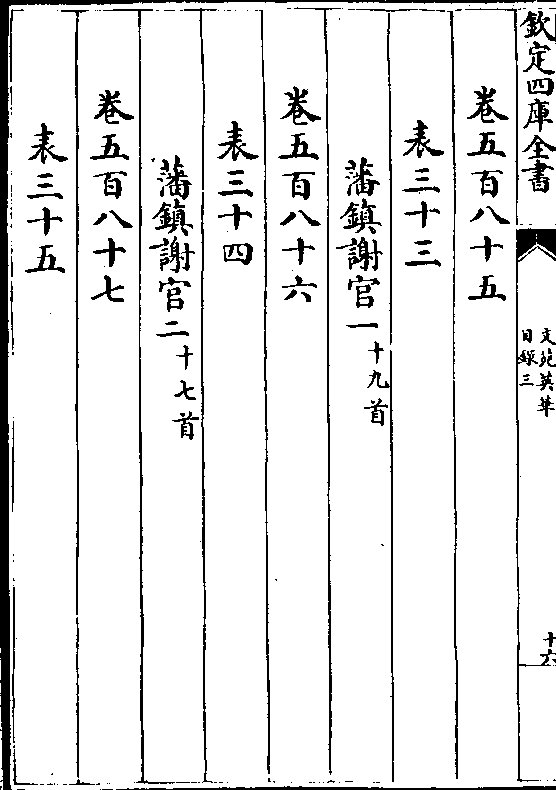 欽定四庫全書
文苑英華
目録三
十六
卷五百八十五
表三十三
藩鎮謝官一十九首
卷五百八十六
表三十四
藩鎮謝官二十七首
卷五百八十七
表三十五